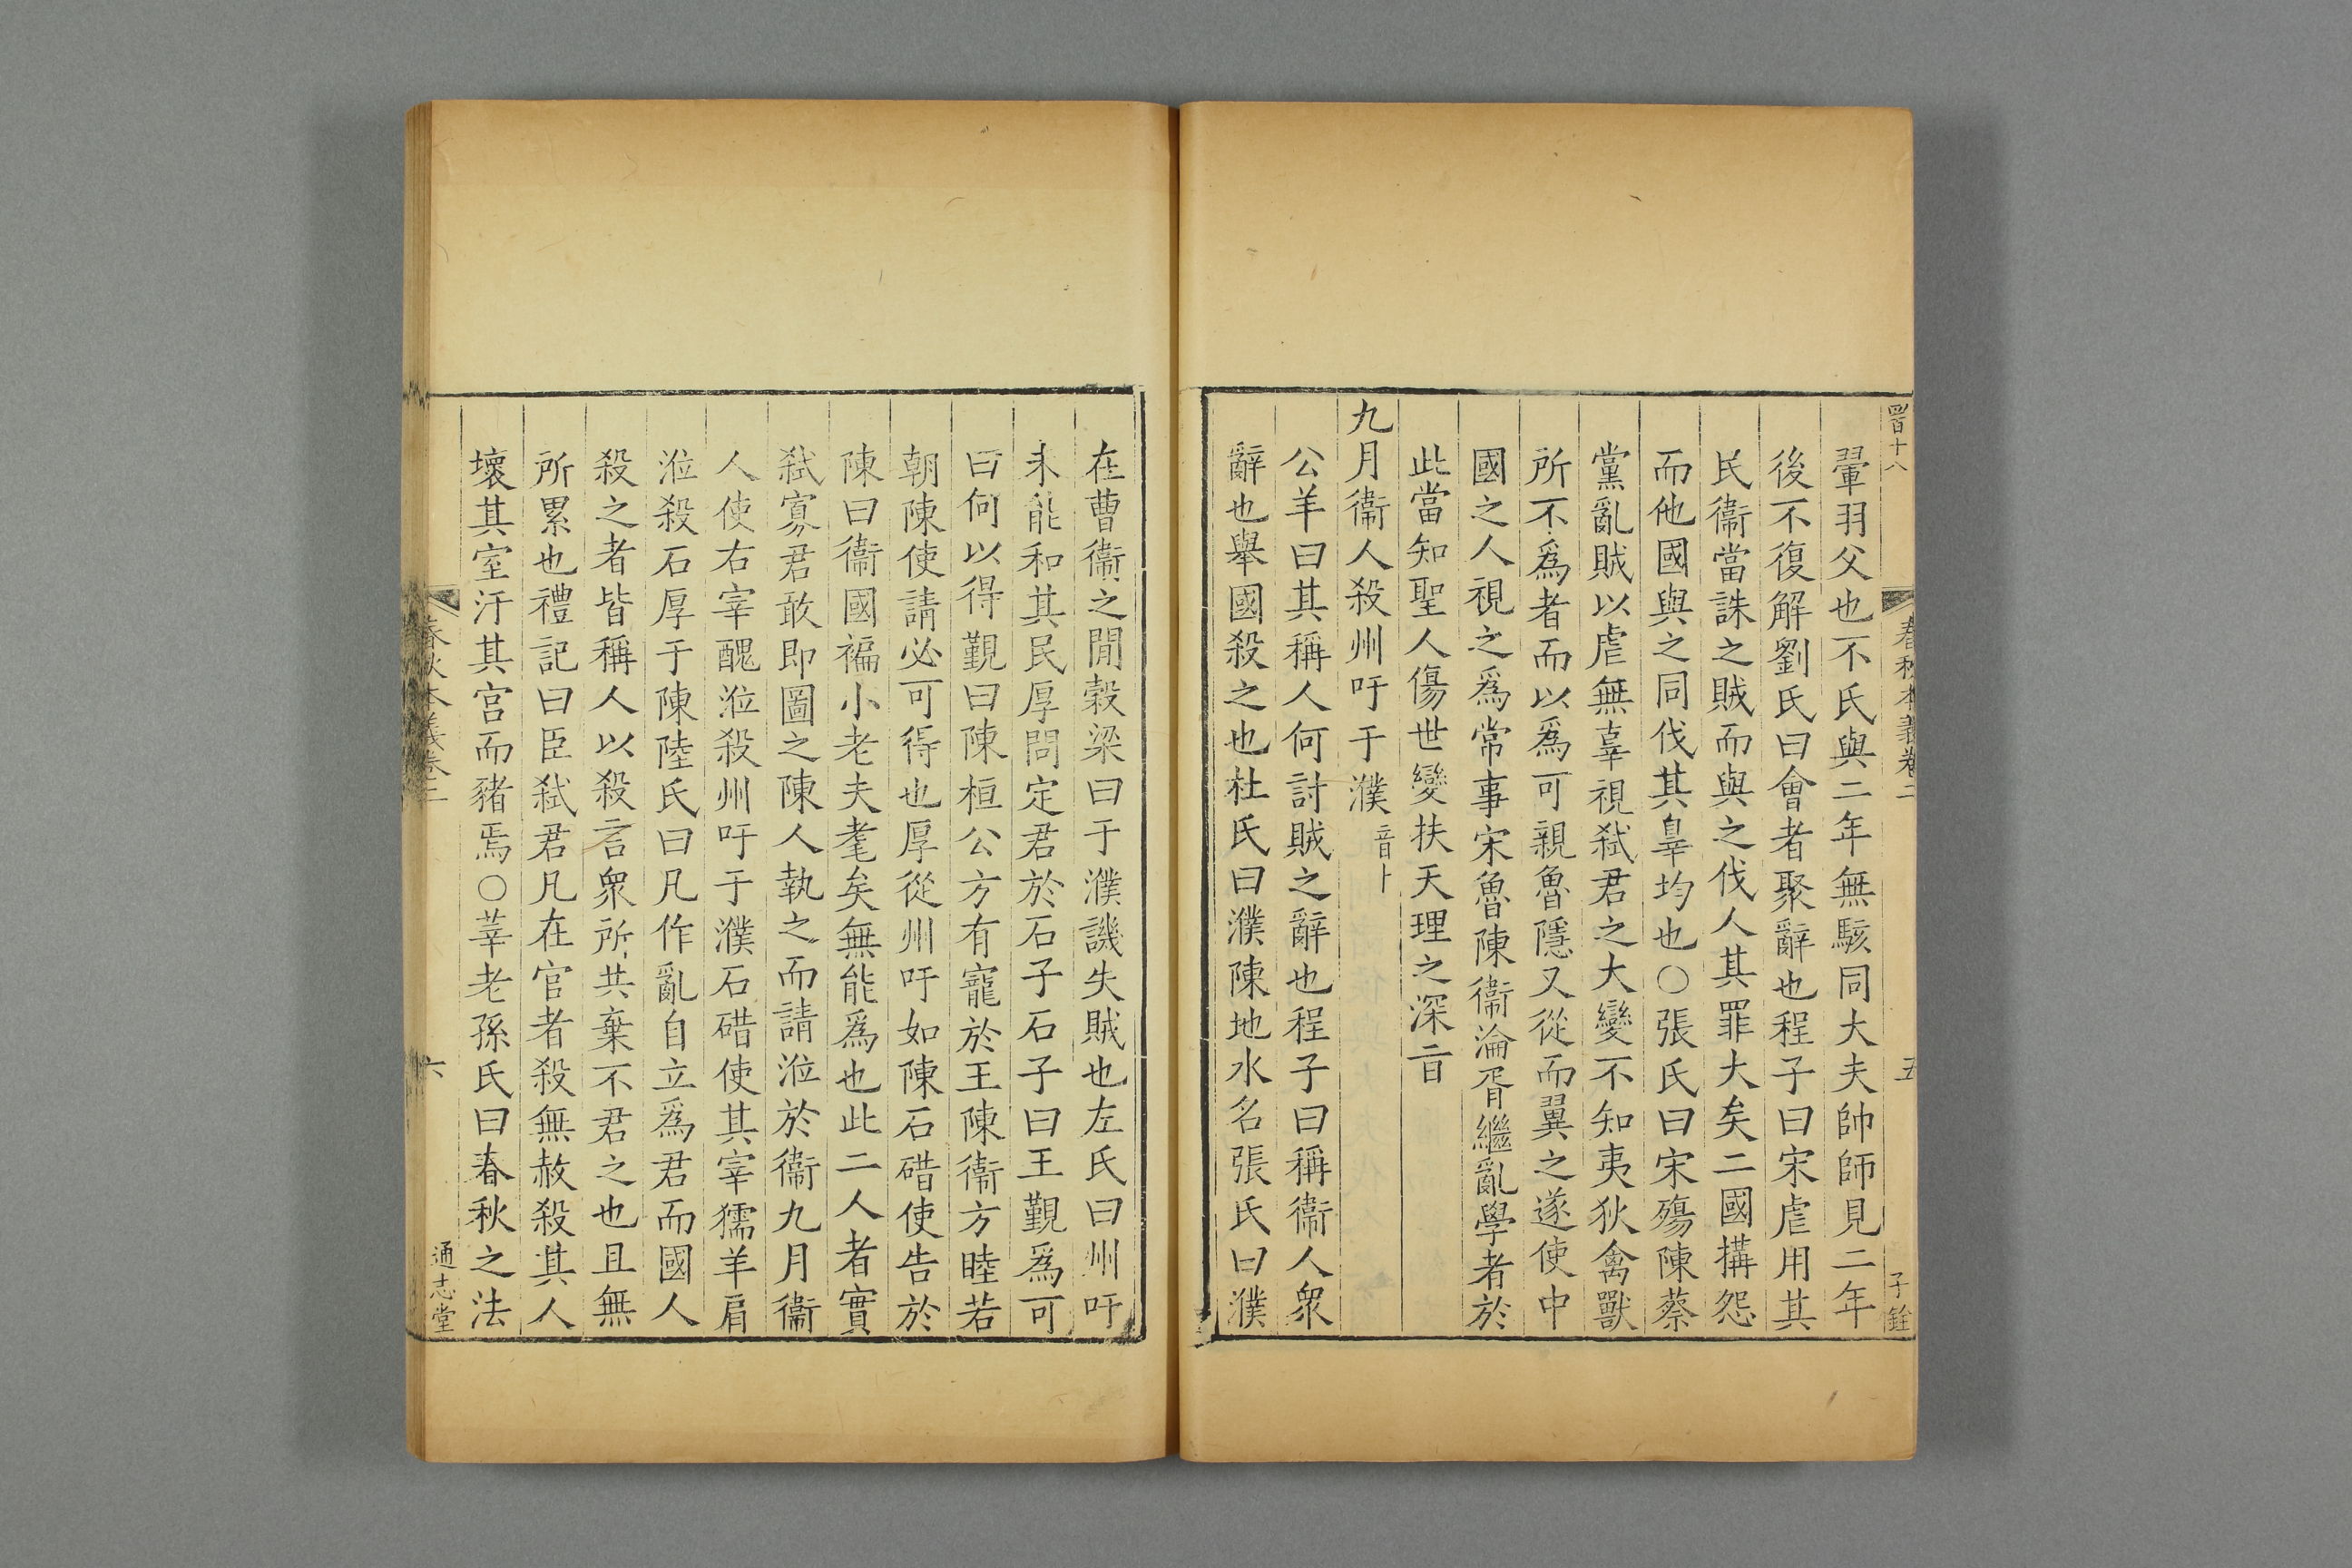 四百十八
春秋本義卷二
五
子銓
翬羽父也不氏與二年無駭同大夫帥師見二年
後不復解劉氏曰會者聚辭也程子曰宋虐用其
民衞當誅之賊而與之伐人其罪大矣二國搆怨
而他國與之同伐其辠均也○張氏曰宋殤陳蔡
黨亂賊以虐無辜視弑君之大變不知夷狄禽獸
所不爲者而以爲可親魯隱又從而翼之遂使中
國之人視之爲常事宋魯陳衞淪胥繼亂學者於
此當知聖人傷世變扶天理之深㫖
九月衞人殺州吁于濮音卜
公羊曰其稱人何討賊之辭也程子曰稱衞人衆
辭也舉國殺之也杜氏曰濮陳地水名張氏曰濮
在曹衞之閒穀梁曰于濮譏失賊也左氏曰州吁
未能和其民厚問定君於石子石子曰王覲爲可
曰何以得覲曰陳桓公方有寵於王陳衞方睦若
朝陳使請必可得也厚從州吁如陳石碏使告於
陳曰衞國褊小老夫耄矣無能爲也此二人者實
弑寡君敢即圖之陳人執之而請涖於衞九月衞
人使右宰醜涖殺州吁于濮石碏使其宰獳羊肩
涖殺石厚于陳陸氏曰凡作亂自立爲君而國人
殺之者皆稱人以殺言衆所共棄不君之也且無
所累也禮記曰臣弑君凡在官者殺無赦殺其人
壞其室汙其宮而豬焉○莘老孫氏曰春秋之法
春秋本義卷二
六
通志堂